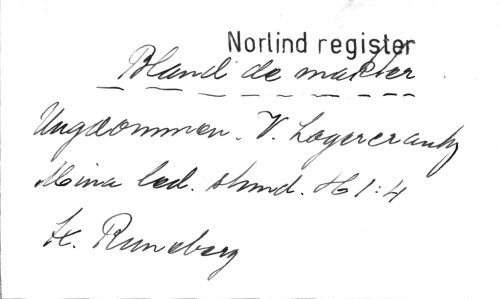 Norlind register
Bland de makter
Ungdommen. V. Lagercrantz
Mina led. stund. H 1:4
Fr. Runeberg